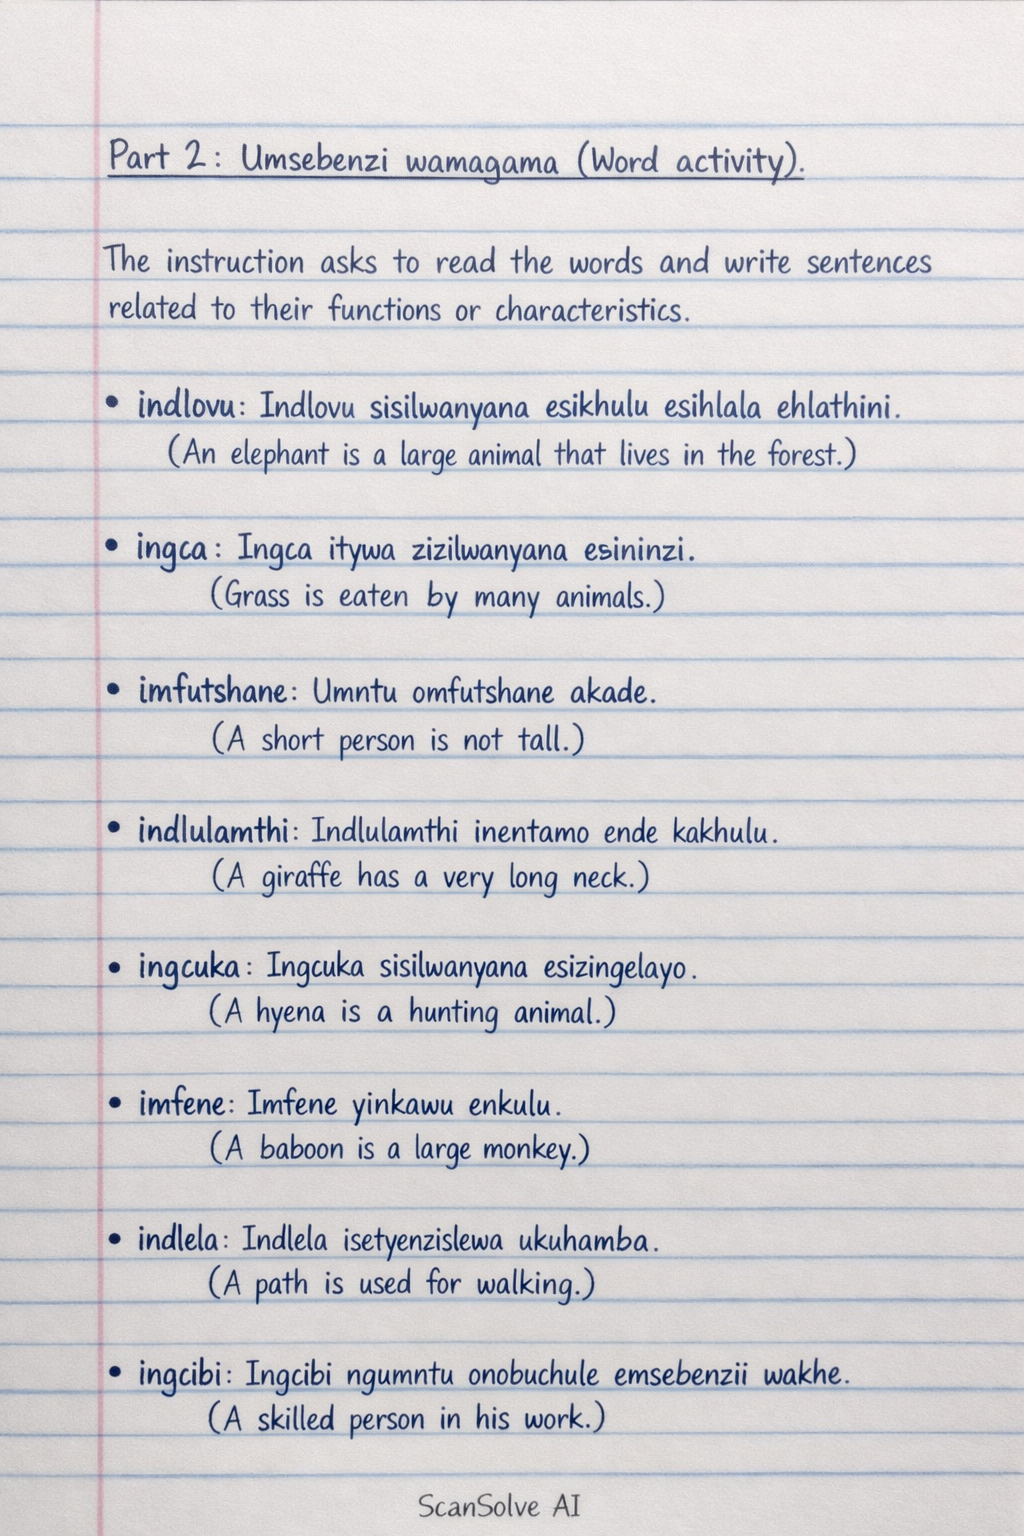 Part 2: Umsebenzi wamagama (Word activity).
The instruction asks to read the words and write sentences
related to their functions or characteristics.
• indlovu: Indlovu sisilwanyana esikhulu esihlala ehlathini.
(An elephant is a large animal that lives in the forest.)
• ingca: Ingca itywa zizilwanyana esininzi.
(Grass is eaten by many animals.)
• imfutshane: Umntu omfutshane akade.
(A short person is not tall.)
• indlulamthi: Indlulamthi inentamo ende kakhulu.
(A giraffe has a very long neck.)
• ingcuka: Ingcuka sisilwanyana esizingelayo.
(A hyena is a hunting animal.)
• imfene: Imfene yinkawu enkulu.
(A baboon is a large monkey.)
• indlela: Indlela isetyenzislewa ukuhamba.
(A path is used for walking.)
• ingcibi: Ingcibi ngumntu onobuchule emsebenzii wakhe.
(A skilled person in his work.)
ScanSolve AI